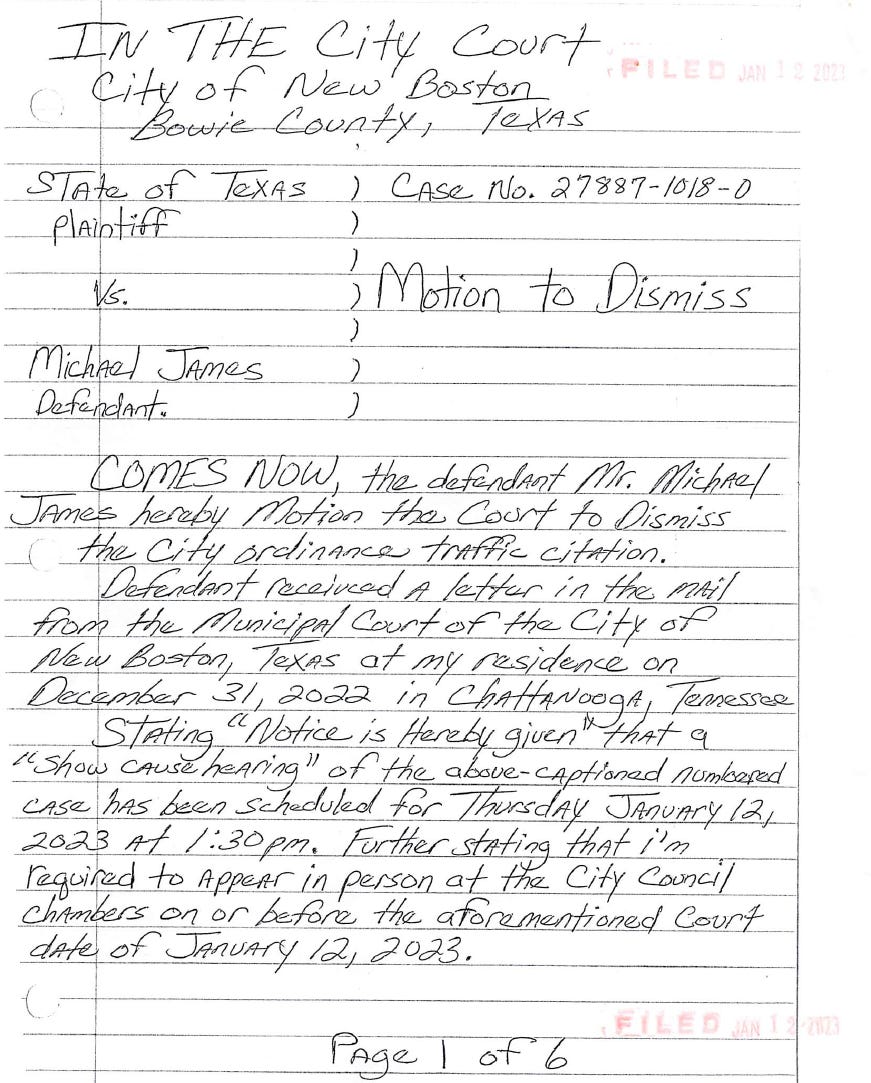 IN THE City Court
FILED JAN 12 2023
City of New Boston
Bowie County, Texas
State of Texas ) Case No. 27887-1018-0
Plaintiff )
)
Vs. ) Motion to Dismiss
)
Michael James )
Defendant. )
COMES NOW, the defendant Mr. Michael
James hereby Motion the Court to Dismiss
the City ordinance traffic citation.
Defendant received a letter in the mail
from the Municipal Court of the City of
New Boston, Texas at my residence on
December 31, 2022 in Chattanooga, Tennessee
Stating "Notice is Hereby given" that a
"Show cause hearing" of the above-captioned numbered
case has been scheduled for Thursday January 12,
2023 at 1:30pm. Further stating that i'm
required to appear in person at the City Council
chambers on or before the aforementioned Court
date of January 12, 2023.
FILED JAN 12 2023
Page 1 of 6